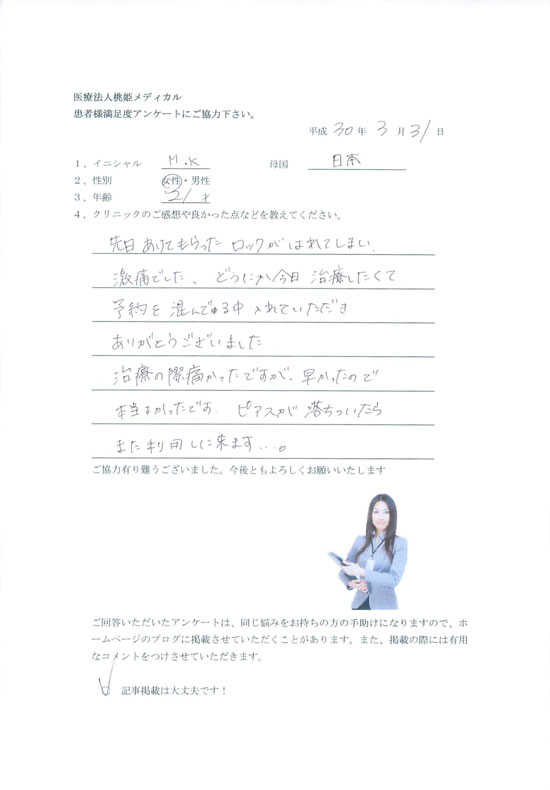 医療法人桃姫メディカル
患者様満足度アンケートにご協力下さい。
平成 30 年 3 月 31 日
1、イニシャル M.K 母国 日本
2、性別 女性・男性
3、年齢 21 才
4、クリニックのご感想や良かった点などを教えてください。
先日 あけてもらった ロックが はれてしまい、
激痛でした、どうにか今日 治療したくて
予約を 混んでる中 入れていただき
ありがとうございました.
治療の際痛かったですが、早かったので
本当よかったです. ピアスが 落ちついたら
また利用しに来ます...。
ご協力有り難うございました。今後ともよろしくお願いいたします
ご回答いただいたアンケートは、同じ悩みをお持ちの方の手助けになりますので、ホ
ームページのブログに掲載させていただくことがあります。また、掲載の際には有用
なコメントをつけさせていただきます。
記事掲載は大丈夫です！